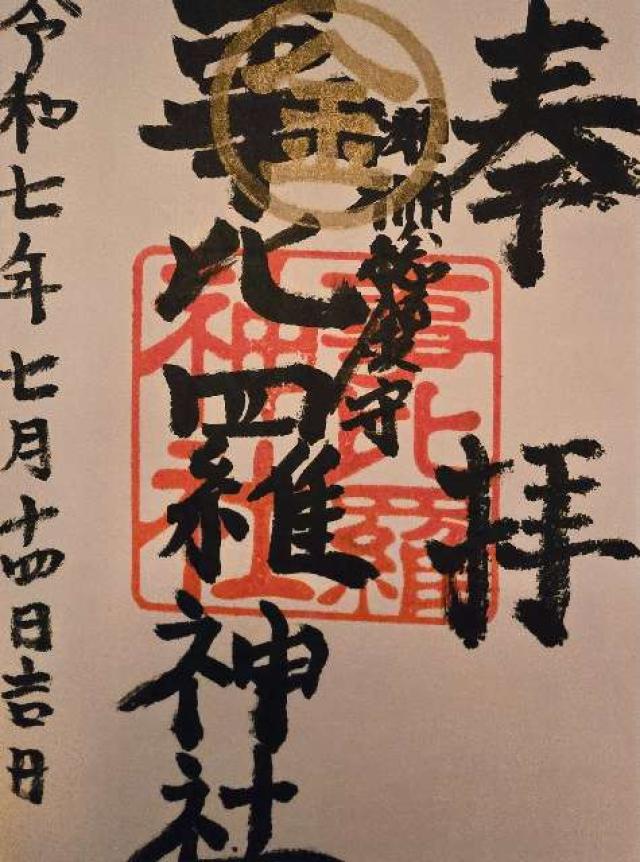 奉拝
瀬棚総鎮守
金
事比羅神社
事比羅神社
令和七年七月十四日吉日